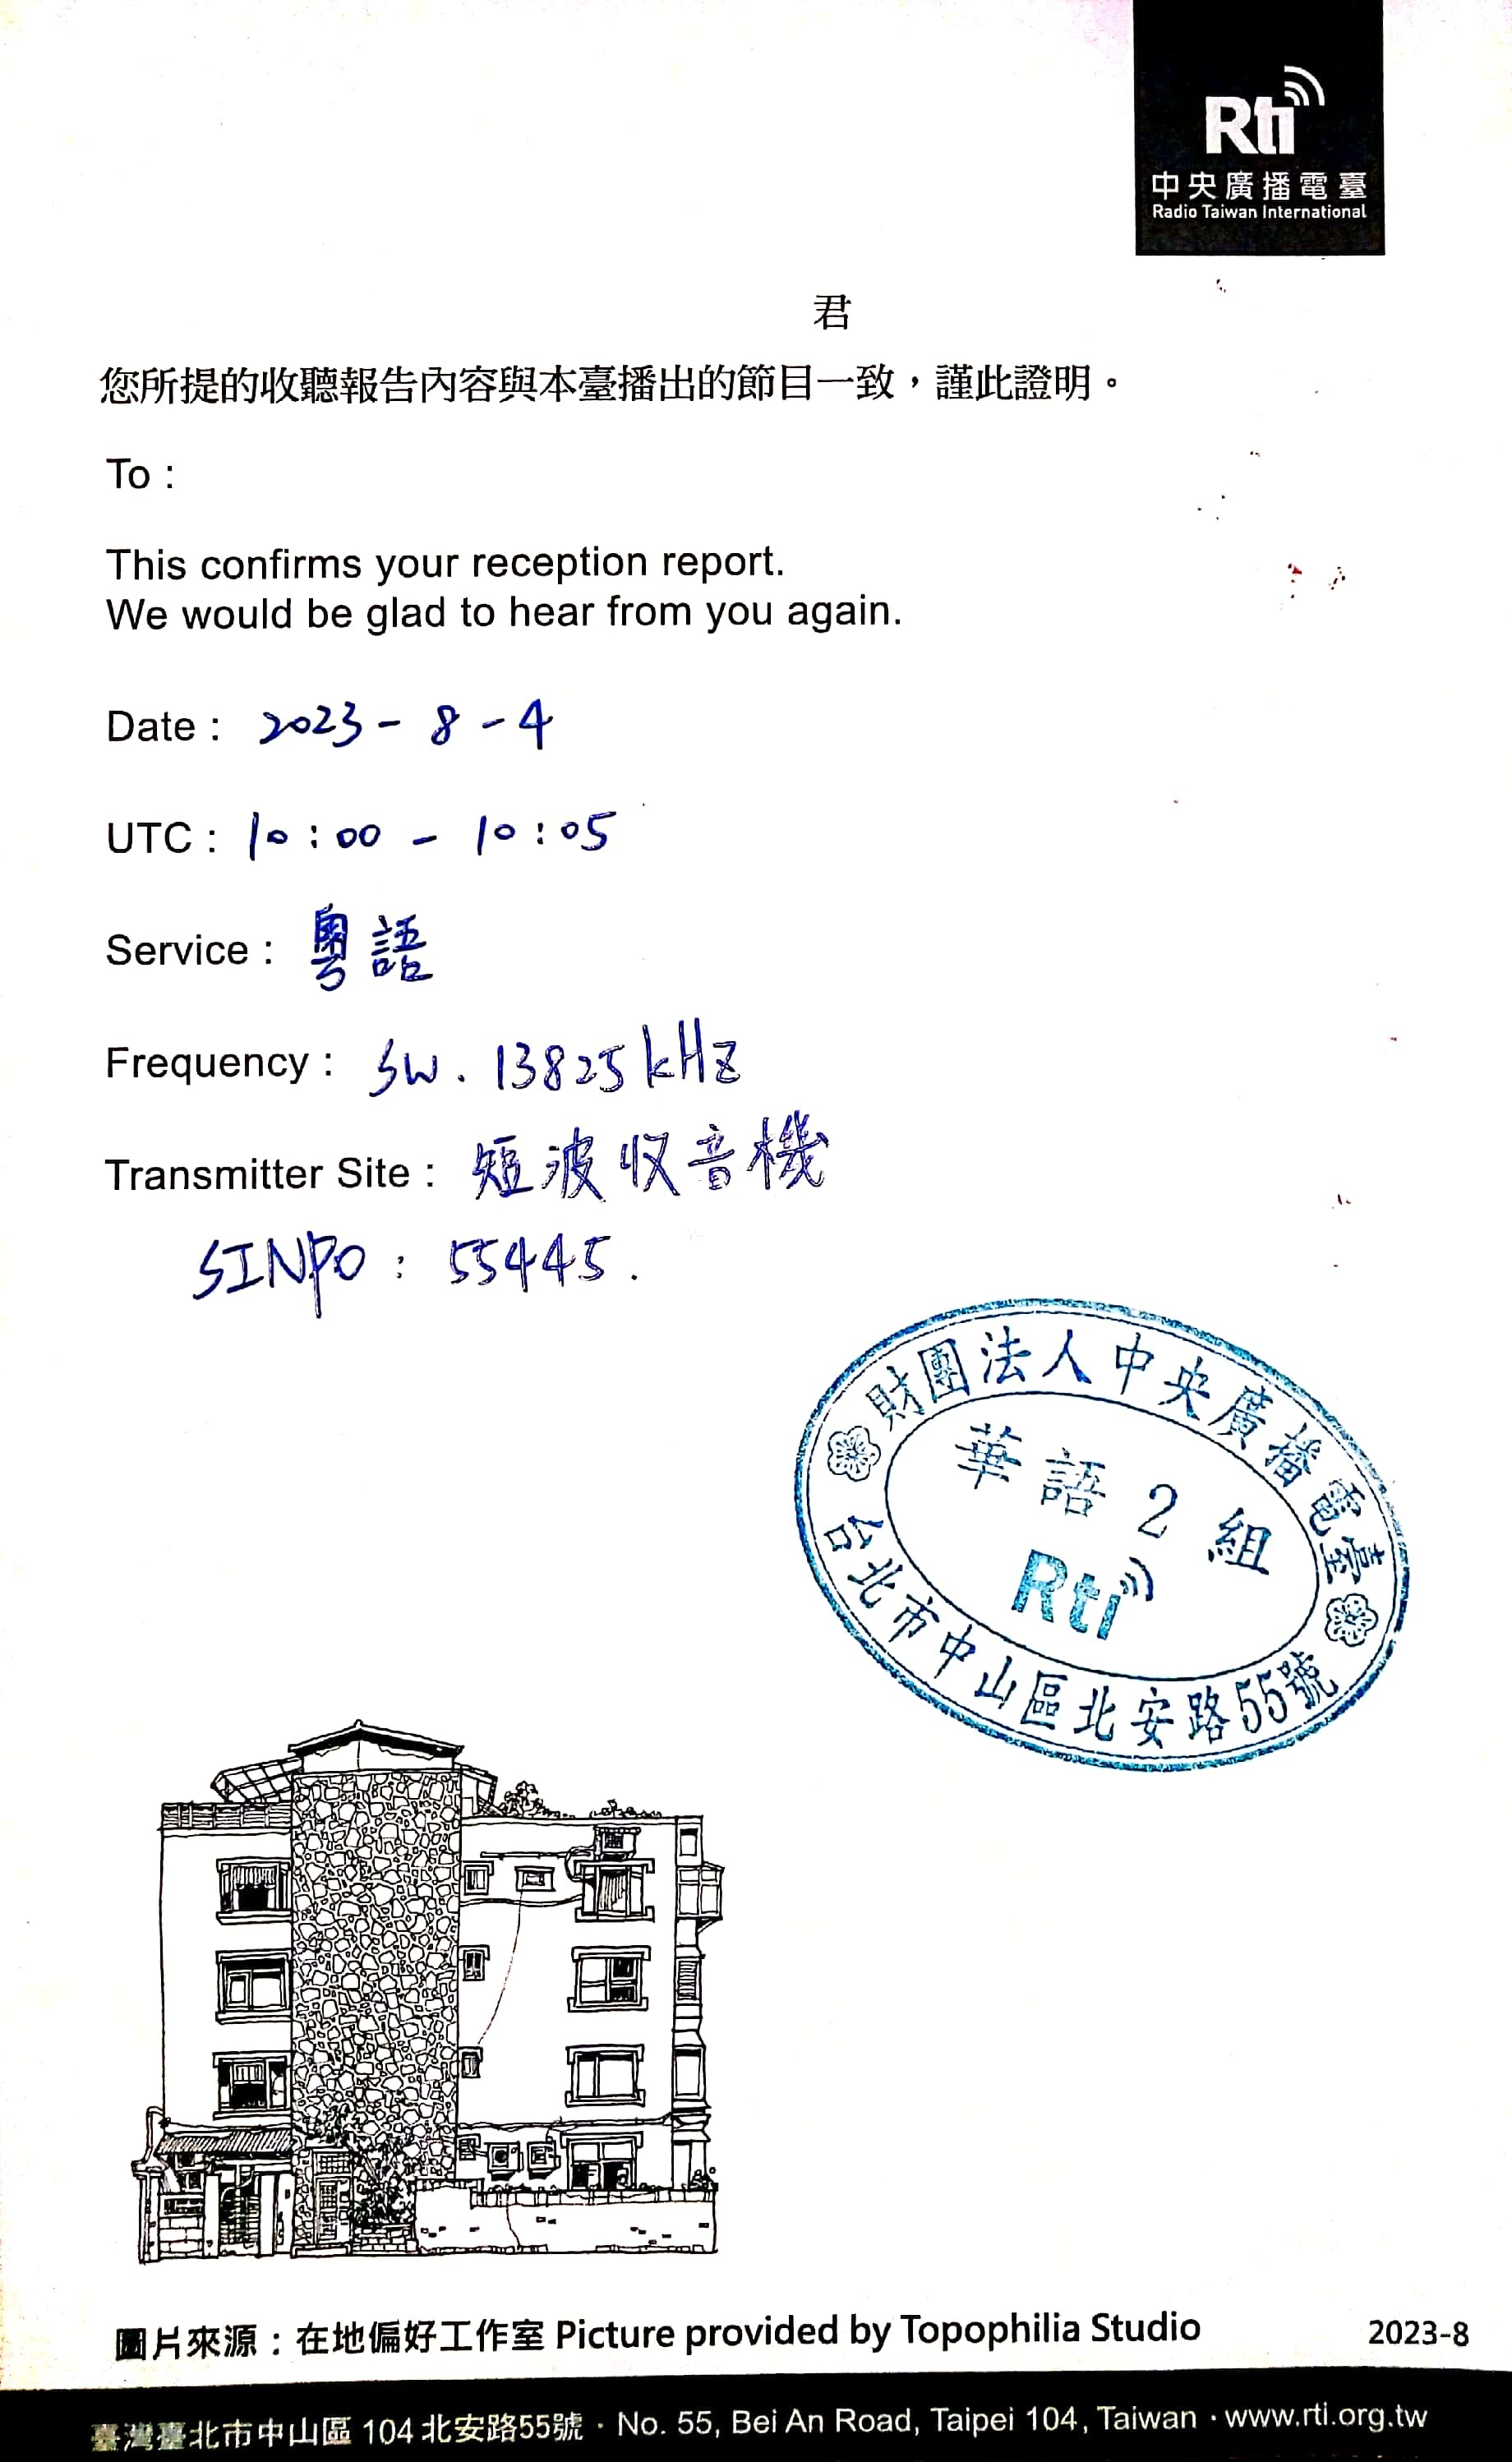 Rti
中央廣播電臺
Radio Taiwan International
君
您所提的收聽報告內容與本臺播出的節目一致，謹此證明。
To :
This confirms your reception report.
We would be glad to hear from you again.
Date : 2023 - 8 - 4
UTC : 10 : 00 - 10 : 05
Service : 粵語
Frequency : SW. 13825 kHz
Transmitter Site : 短波收音機
SINPO : 55445.
財團法人中央廣播電臺
華語2組
Rti
台北市中山區北安路55號
圖片來源：在地偏好工作室 Picture provided by Topophilia Studio 2023-8
臺灣臺北市中山區 104 北安路55號 · No. 55, Bei An Road, Taipei 104, Taiwan · www.rti.org.tw